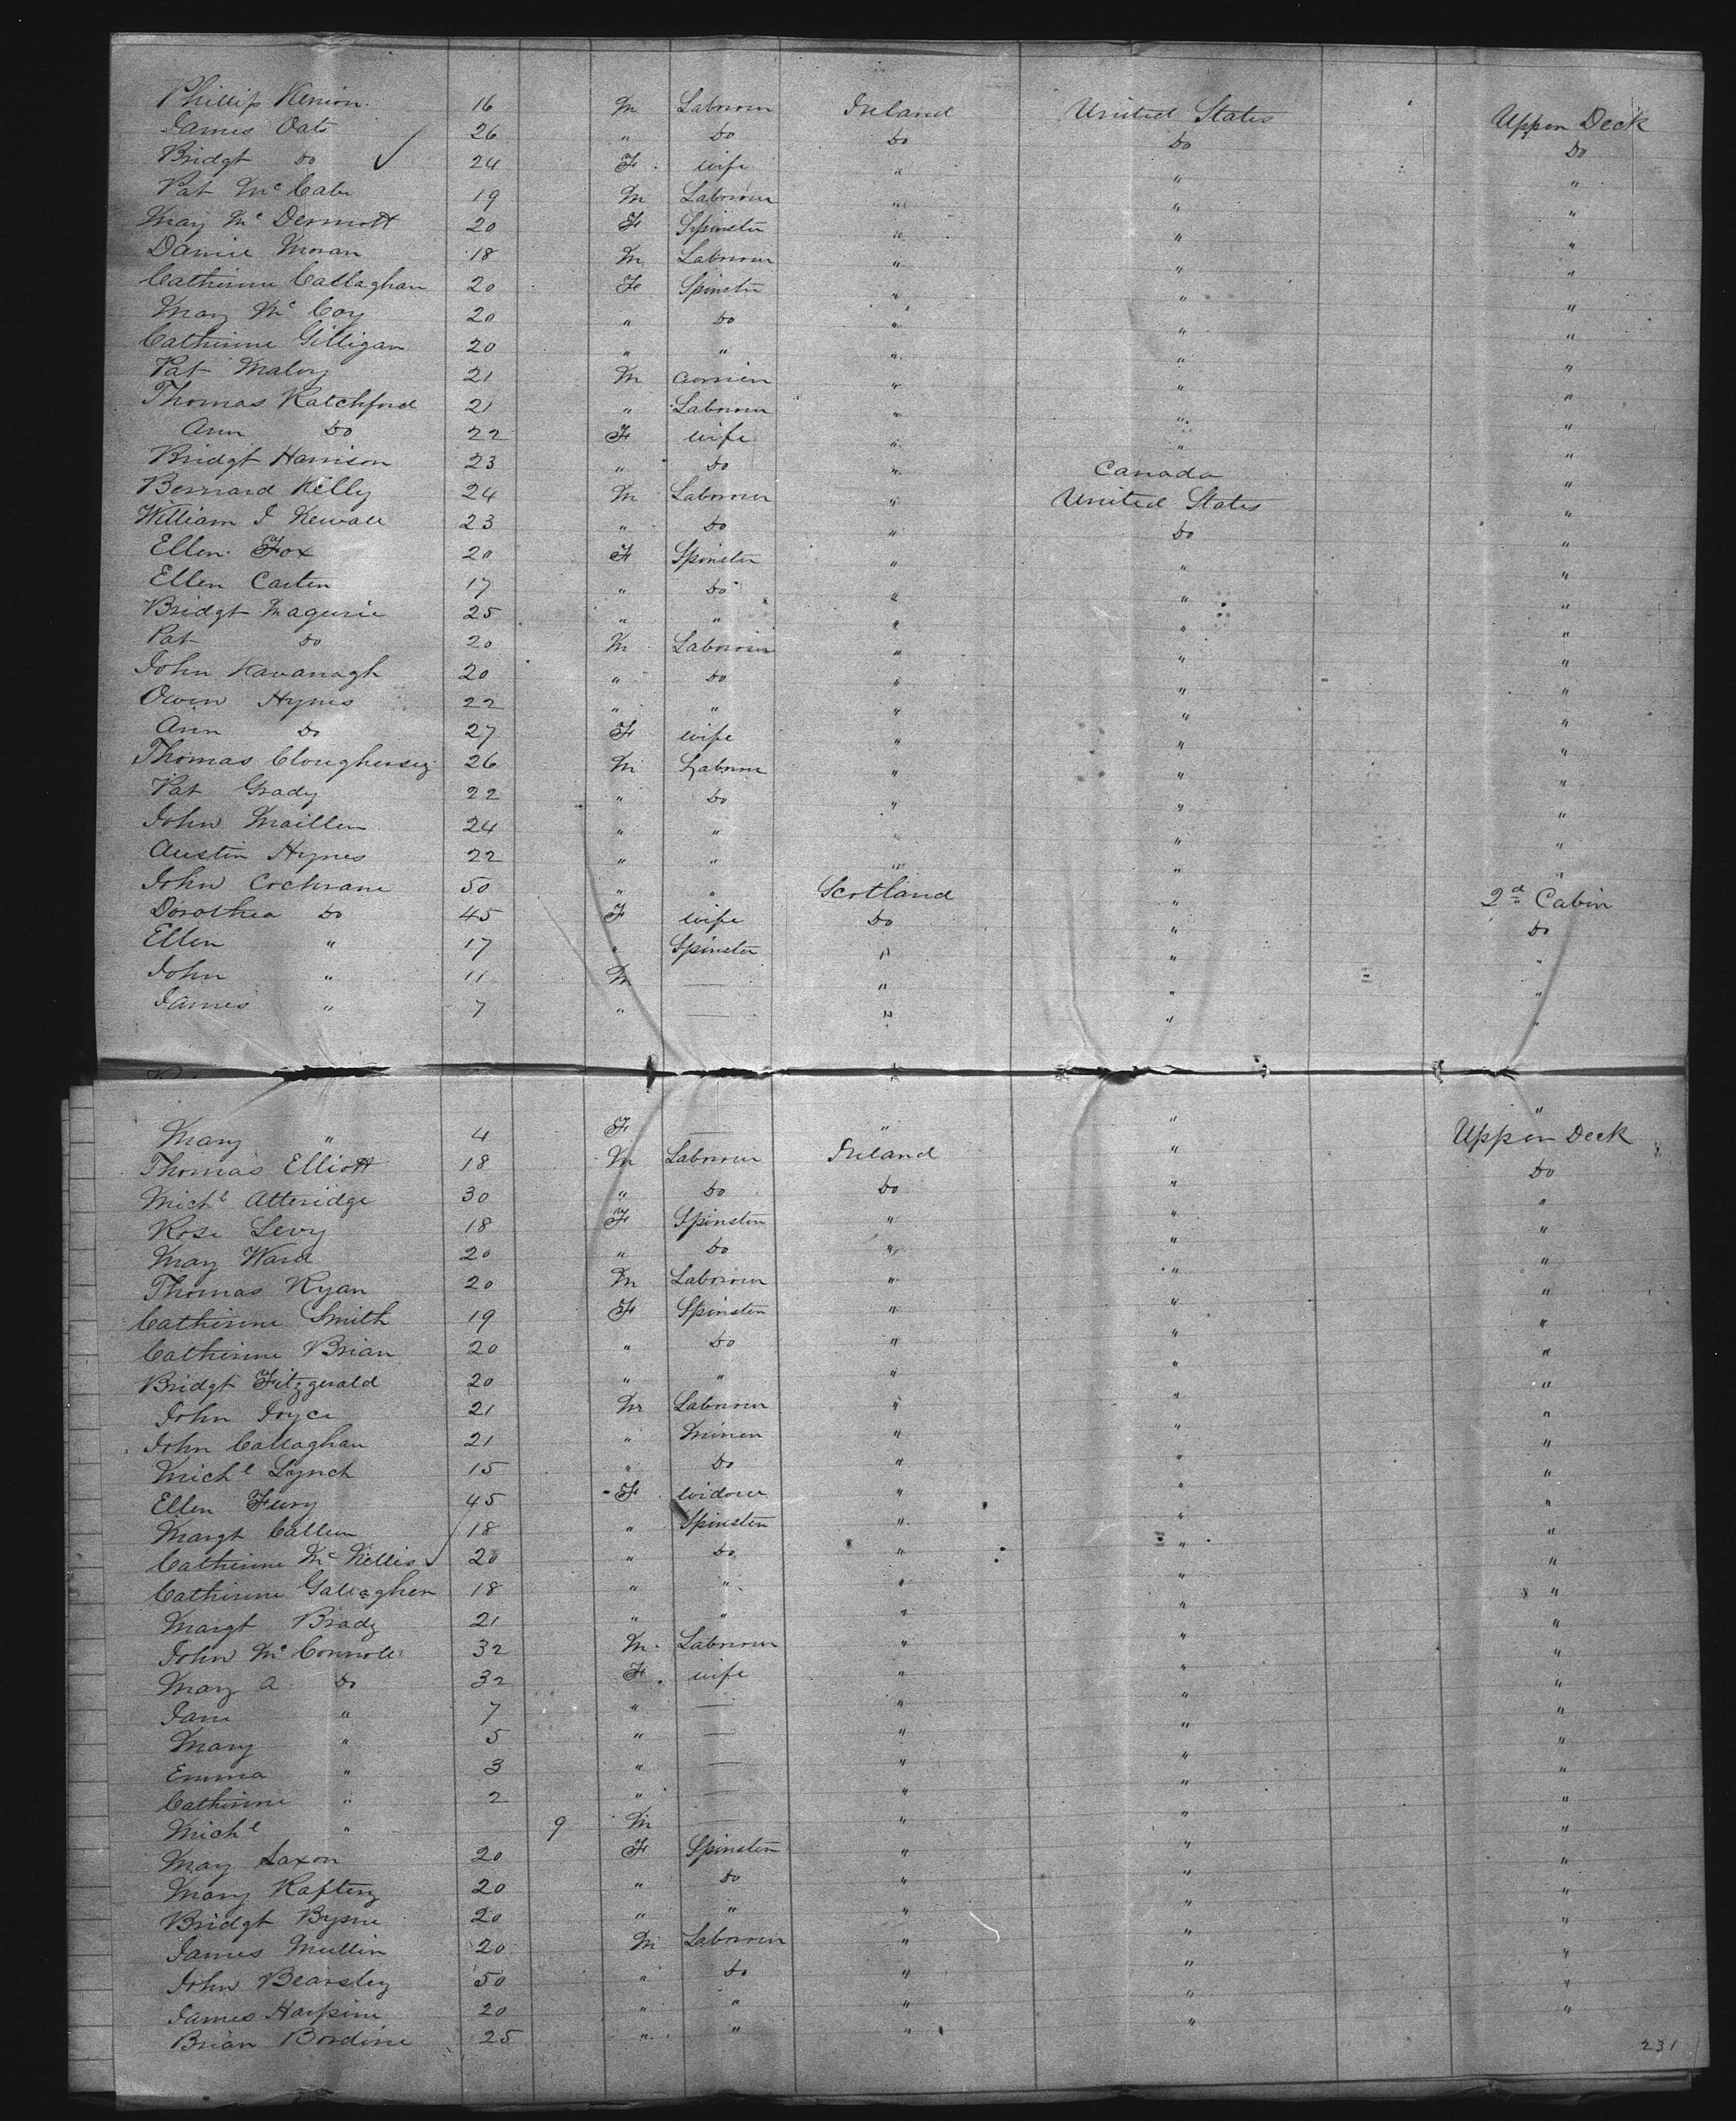 Phillip Kenion 16 M Labourer Ireland United States Upper Deck
James Oats 26 " Do Do Do Do
Bridgt Do 24 F wife " " "
Pat McCabe 19 M Labourer " " "
Mary McDermott 20 F Spinster " " "
Daniel Moran 18 M Labourer " " "
Catherine Callaghan 20 F Spinster " " "
Mary McCoy 20 " Do " " "
Catherine Gilligan 20 " " " " "
Pat Maloy 21 M " " "
Thomas Ratchford 21 " Labourer " " "
Ann Do 22 F wife " " "
Bridgt Harrison 23 " Do " Canada "
Bernard Kelly 24 M Labourer " United States "
William J 23 " Do " Do "
Ellen Fox 20 F Spinster " " "
Ellen Carten 17 " Do " " "
Bridgt Maguire 25 " " " " "
Pat Do 20 M Labourer " " "
John Kavanagh 20 " Do " " "
Owen Hynes 22 " " " " "
Ann Do 27 F wife " " "
Thomas Cloughersey 26 M Labourer " " "
Pat Grady 22 " Do " " "
John Maillen 24 " " " " "
Austin Hynes 22 " " " " "
John Cochrane 50 " " Scotland " 2d Cabin
Dorothea Do 45 F wife Do " Do
Ellen " 17 " Spinster " " "
John " 11 M — " " "
James " 7 " — " " "
Mary " 4 F — " " "
Thomas Elliott 18 M Labourer Ireland " Upper Deck
Michl Atteridge 30 " Do Do " Do
Rose Levy 18 F Spinster " " "
Mary Ward 20 " Do " " "
Thomas Ryan 20 M Labourer " " "
Catherine Smith 19 F Spinster " " "
Catherine Brian 20 " Do " " "
Bridgt Fitzgerald 20 " " " " "
John Joyce 21 M Labourer " " "
John Callaghan 21 " Miner " " "
Michl Lynch 15 " Do " " "
Ellen Fury 45 F widow " " "
Margt Callen 18 " Spinster " " "
Catherine McKellis 20 " Do " " "
Catherine Gallagher 18 " " " " "
Margt Brady 21 " " " " "
John McConnole 32 M Labourer " " "
Mary A Do 32 F wife " " "
Jane " 7 " — " " "
Mary " 5 " — " " "
Emma " 3 " — " " "
Catherine " 2 " — " " "
Michl " 9 M " " "
Mary Saxon 20 F Spinster " " "
Mary Raftery 20 " Do " " "
Bridgt Byrne 20 " " " " "
James Mullin 20 M Labourer " " "
John Bearsley 50 " Do " " "
James Harpine 20 " " " " "
Brian Bordine 25 " " " "
231